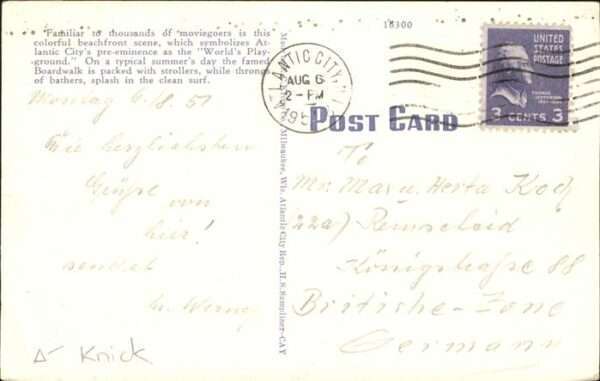 "Familiar to thousands of moviegoers is this
colorful beachfront scene, which symbolizes At-
lantic City's pre-eminence as the "World's Play-
ground." On a typical summer's day the famed
Boardwalk is packed with strollers, while throngs
of bathers, splash in the clean surf.
Montag 6.8.51
Die herzlichsten
Grüße von
hier!
sendet
Knick
16300
ATLANTIC CITY, N.J.
AUG 6
2-PM
195
POST CARD
UNITED
STATES
POSTAGE
THOMAS
JEFFERSON
3 CENTS 3
Milwaukee, Wis. Atlantic City Rep., H. S. Sampliner-CAY
To
Mr. Max u. Herta Koch
22a) Remscheid
Königstraße 88
Britishe-Zone
Germany